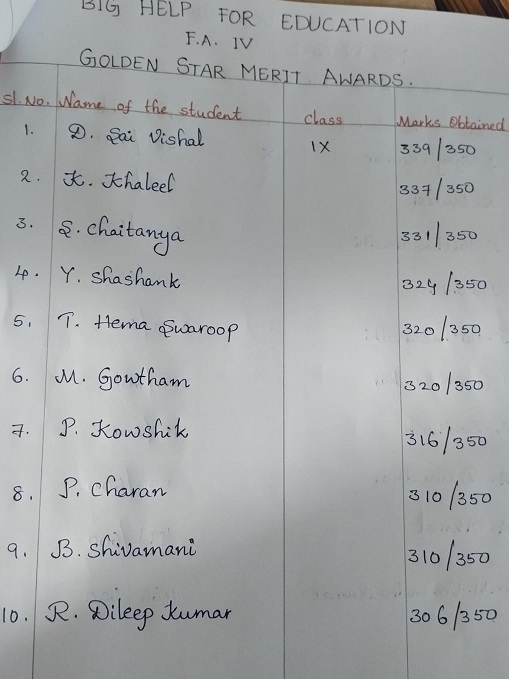 BIG HELP FOR EDUCATION
F.A. IV
GOLDEN STAR MERIT AWARDS.
Sl. No. Name of the student Class Marks Obtained
1. D. Sai Vishal IX 339/350
2. K. Khaleel 337/350
3. S. Chaitanya 331/350
4. Y. Shashank 324/350
5. T. Hema Swaroop 320/350
6. M. Gowtham 320/350
7. P. Kowshik 316/350
8. P. Charan 310/350
9. B. Shivamani 310/350
10. R. Dileep Kumar 306/350